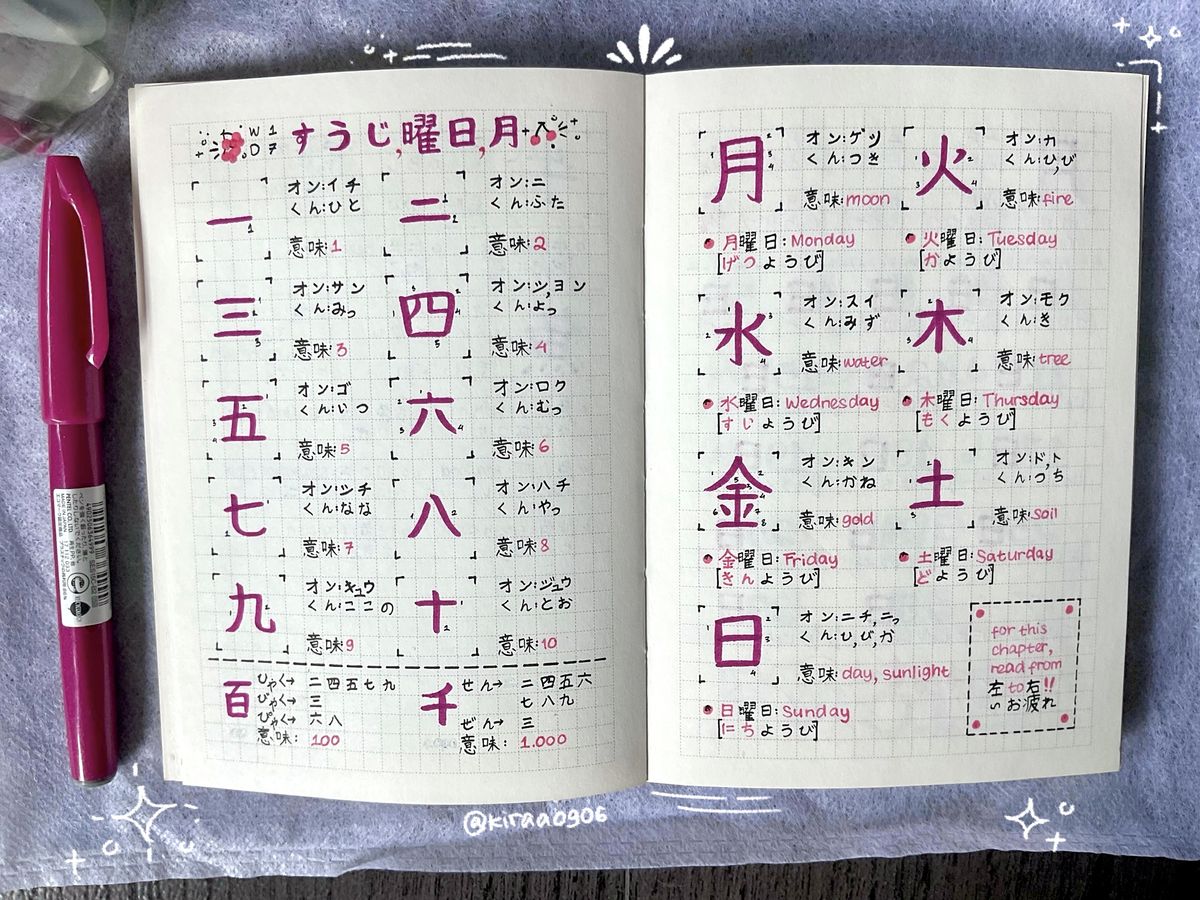 W1
D7
すうじ,曜日,月
一
オン:イチ
くん:ひと
意味:1
二
オン:ニ
くん:ふた
意味:2
三
オン:サン
くん:みっ
意味:3
四
オン:シ,ヨン
くん:よっ
意味:4
五
オン:ゴ
くん:いつ
意味:5
六
オン:ロク
くん:むっ
意味:6
七
オン:シチ
くん:なな
意味:7
八
オン:ハチ
くん:やっ
意味:8
九
オン:キュウ
くん:ここの
意味:9
十
オン:ジュウ
くん:とお
意味:10
百
ひゃく→ 二四五七九
びゃく→ 三
ぴゃく→ 六八
意味: 100
千
せん→ 二四五六
七八九
ぜん→ 三
意味: 1.000
月
オン:ゲツ
くん:つき
意味:moon
月曜日:Monday
[げつようび]
火
オン:カ
くん:ひ,び
意味:fire
火曜日:Tuesday
[かようび]
水
オン:スイ
くん:みず
意味:water
水曜日:Wednesday
[すいようび]
木
オン:モク
くん:き
意味:tree
木曜日:Thursday
[もくようび]
金
オン:キン
くん:かね
意味:gold
金曜日:Friday
[きんようび]
土
オン:ド,ト
くん:つち
意味:soil
土曜日:Saturday
[どようび]
日
オン:ニチ,ニッ
くん:ひ,び,か
意味:day, sunlight
日曜日:Sunday
[にちようび]
for this
chapter,
read from
左to右!!
いお疲れ
@kiraa0906